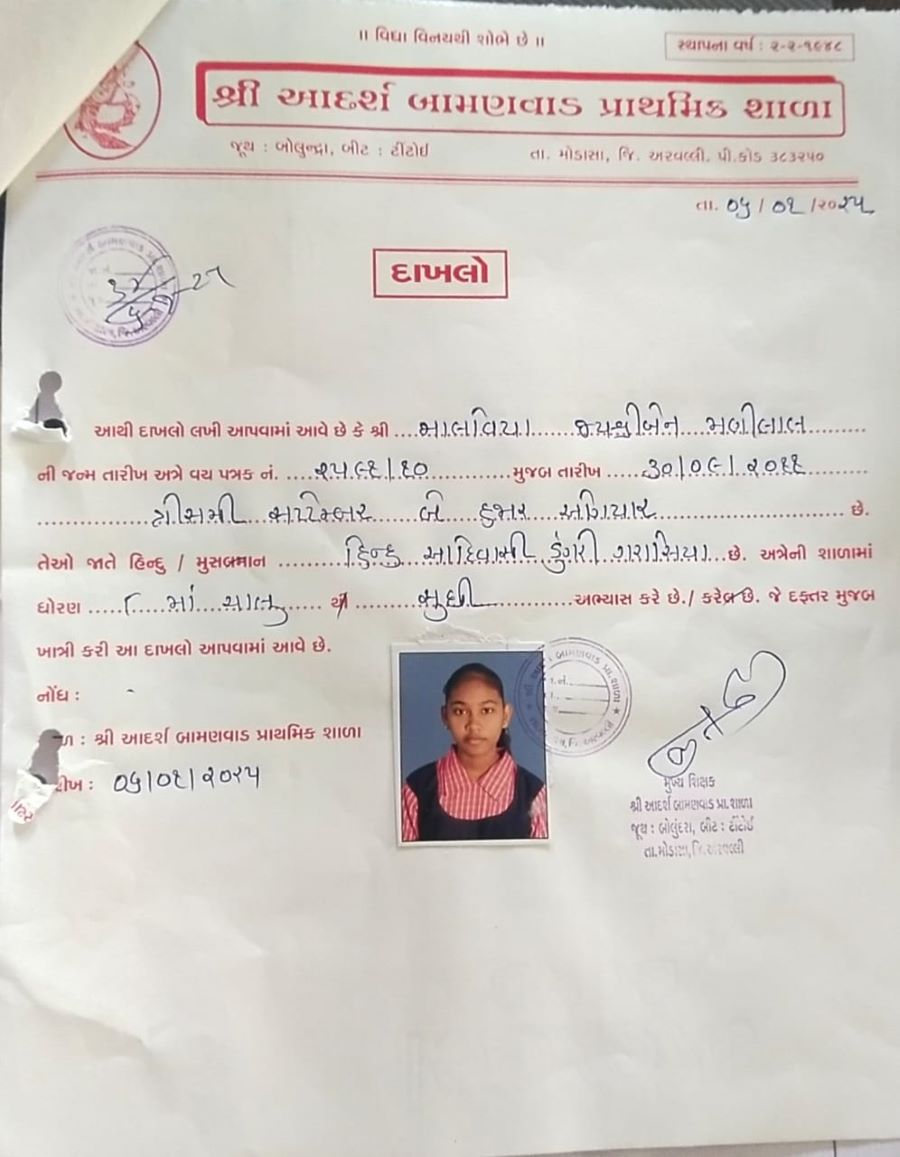 ॥ વિદ્યા વિનયથી શોભે છે ॥
સ્થાપના વર્ષ : ૨-૨-૧૯૪૮
શ્રી આદર્શ બામણવાડ પ્રાથમિક શાળા
જૂથ : બોલુન્દ્રા, બીટ : ટીંટોઈ
તા. મોડાસા, જિ. અરવલ્લી. પી.કોડ ૩૮૩૨૫૦
તા. ૦૫ / ૦૨ /૨૦૨૫
દાખલો
આથી દાખલો લખી આપવામાં આવે છે કે શ્રી ....માલવિયા...... જયશ્રીબેન મણીલાલ
ની જન્મ તારીખ અત્રે વય પત્રક નં. ................ મુજબ તારીખ ..... ૩૦/૦૯/૨૦૧૧
ત્રીસમી સપ્ટેમ્બર બે હજાર અગિયાર ........ છે.
તેઓ જાતે હિન્દુ / મુસલમાન ........ હિન્દુ આદિવાસી ડુંગરી ગરાસિયા... છે. અત્રેની શાળામાં
ધોરણ ..... માં ચાલુ ..... થી ........ સુધી ............ અભ્યાસ કરે છે./ કરેલ છે. જે દફતર મુજબ
ખાત્રી કરી આ દાખલો આપવામાં આવે છે.
નોંધ :
: શ્રી આદર્શ બામણવાડ પ્રાથમિક શાળા
મુખ્ય શિક્ષક
શ્રી આદર્શ બામણવાડ પ્રા.શાળા
જૂથ : બોલુંદરા, બીટ : ટીંટોઈ
તા.મોડાસા, જિ.અરવલ્લી